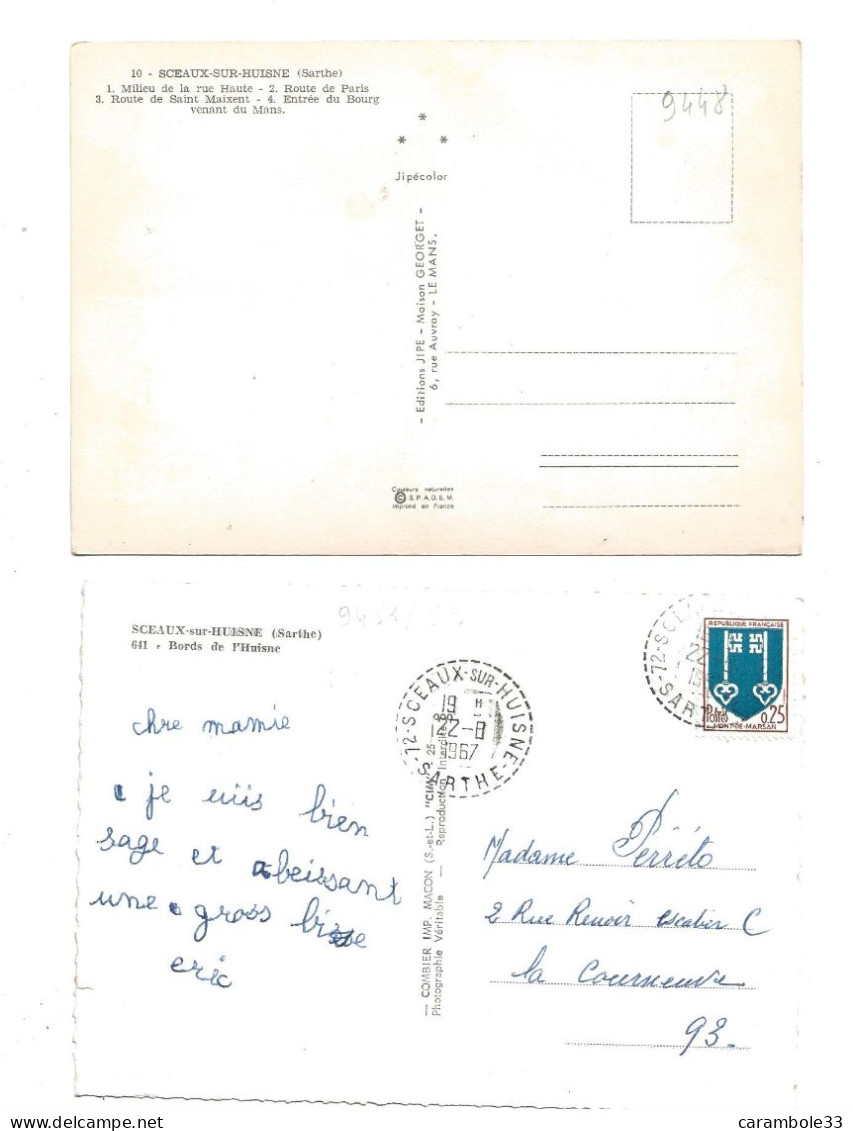 10 - SCEAUX-SUR-HUISNE (Sarthe)
1. Milieu de la rue Haute - 2. Route de Paris
3. Route de Saint Maixent - 4. Entrée du Bourg
venant du Mans.
9448
* * *
Jipécolor
- Editions JIPE - Maison GEORGET -
6, rue Auvray - LE MANS.
Couleurs naturelles
© S.P.A.D.E.M.
Imprimé en France
SCEAUX-sur-HUISNE (Sarthe)
641 - Bords de l'Huisne
chre mamie
je uis bien
sage et abeissant
une gross bise
eric
72-SCEAUX-SUR-HUISNE
19 H
22-8
1967
SARTHE
— COMBIER IMP. MACON (S.-et-L.) "CIM"
Photographie Véritable — Reproduction Interdite
72-SCEAUX
22
SARTHE
REPUBLIQUE FRANÇAISE
Postes
0,25
MONT-DE-MARSAN
Madame Perreto
2 Rue Renoir escalier C
la Courneuve
93.
carambole33